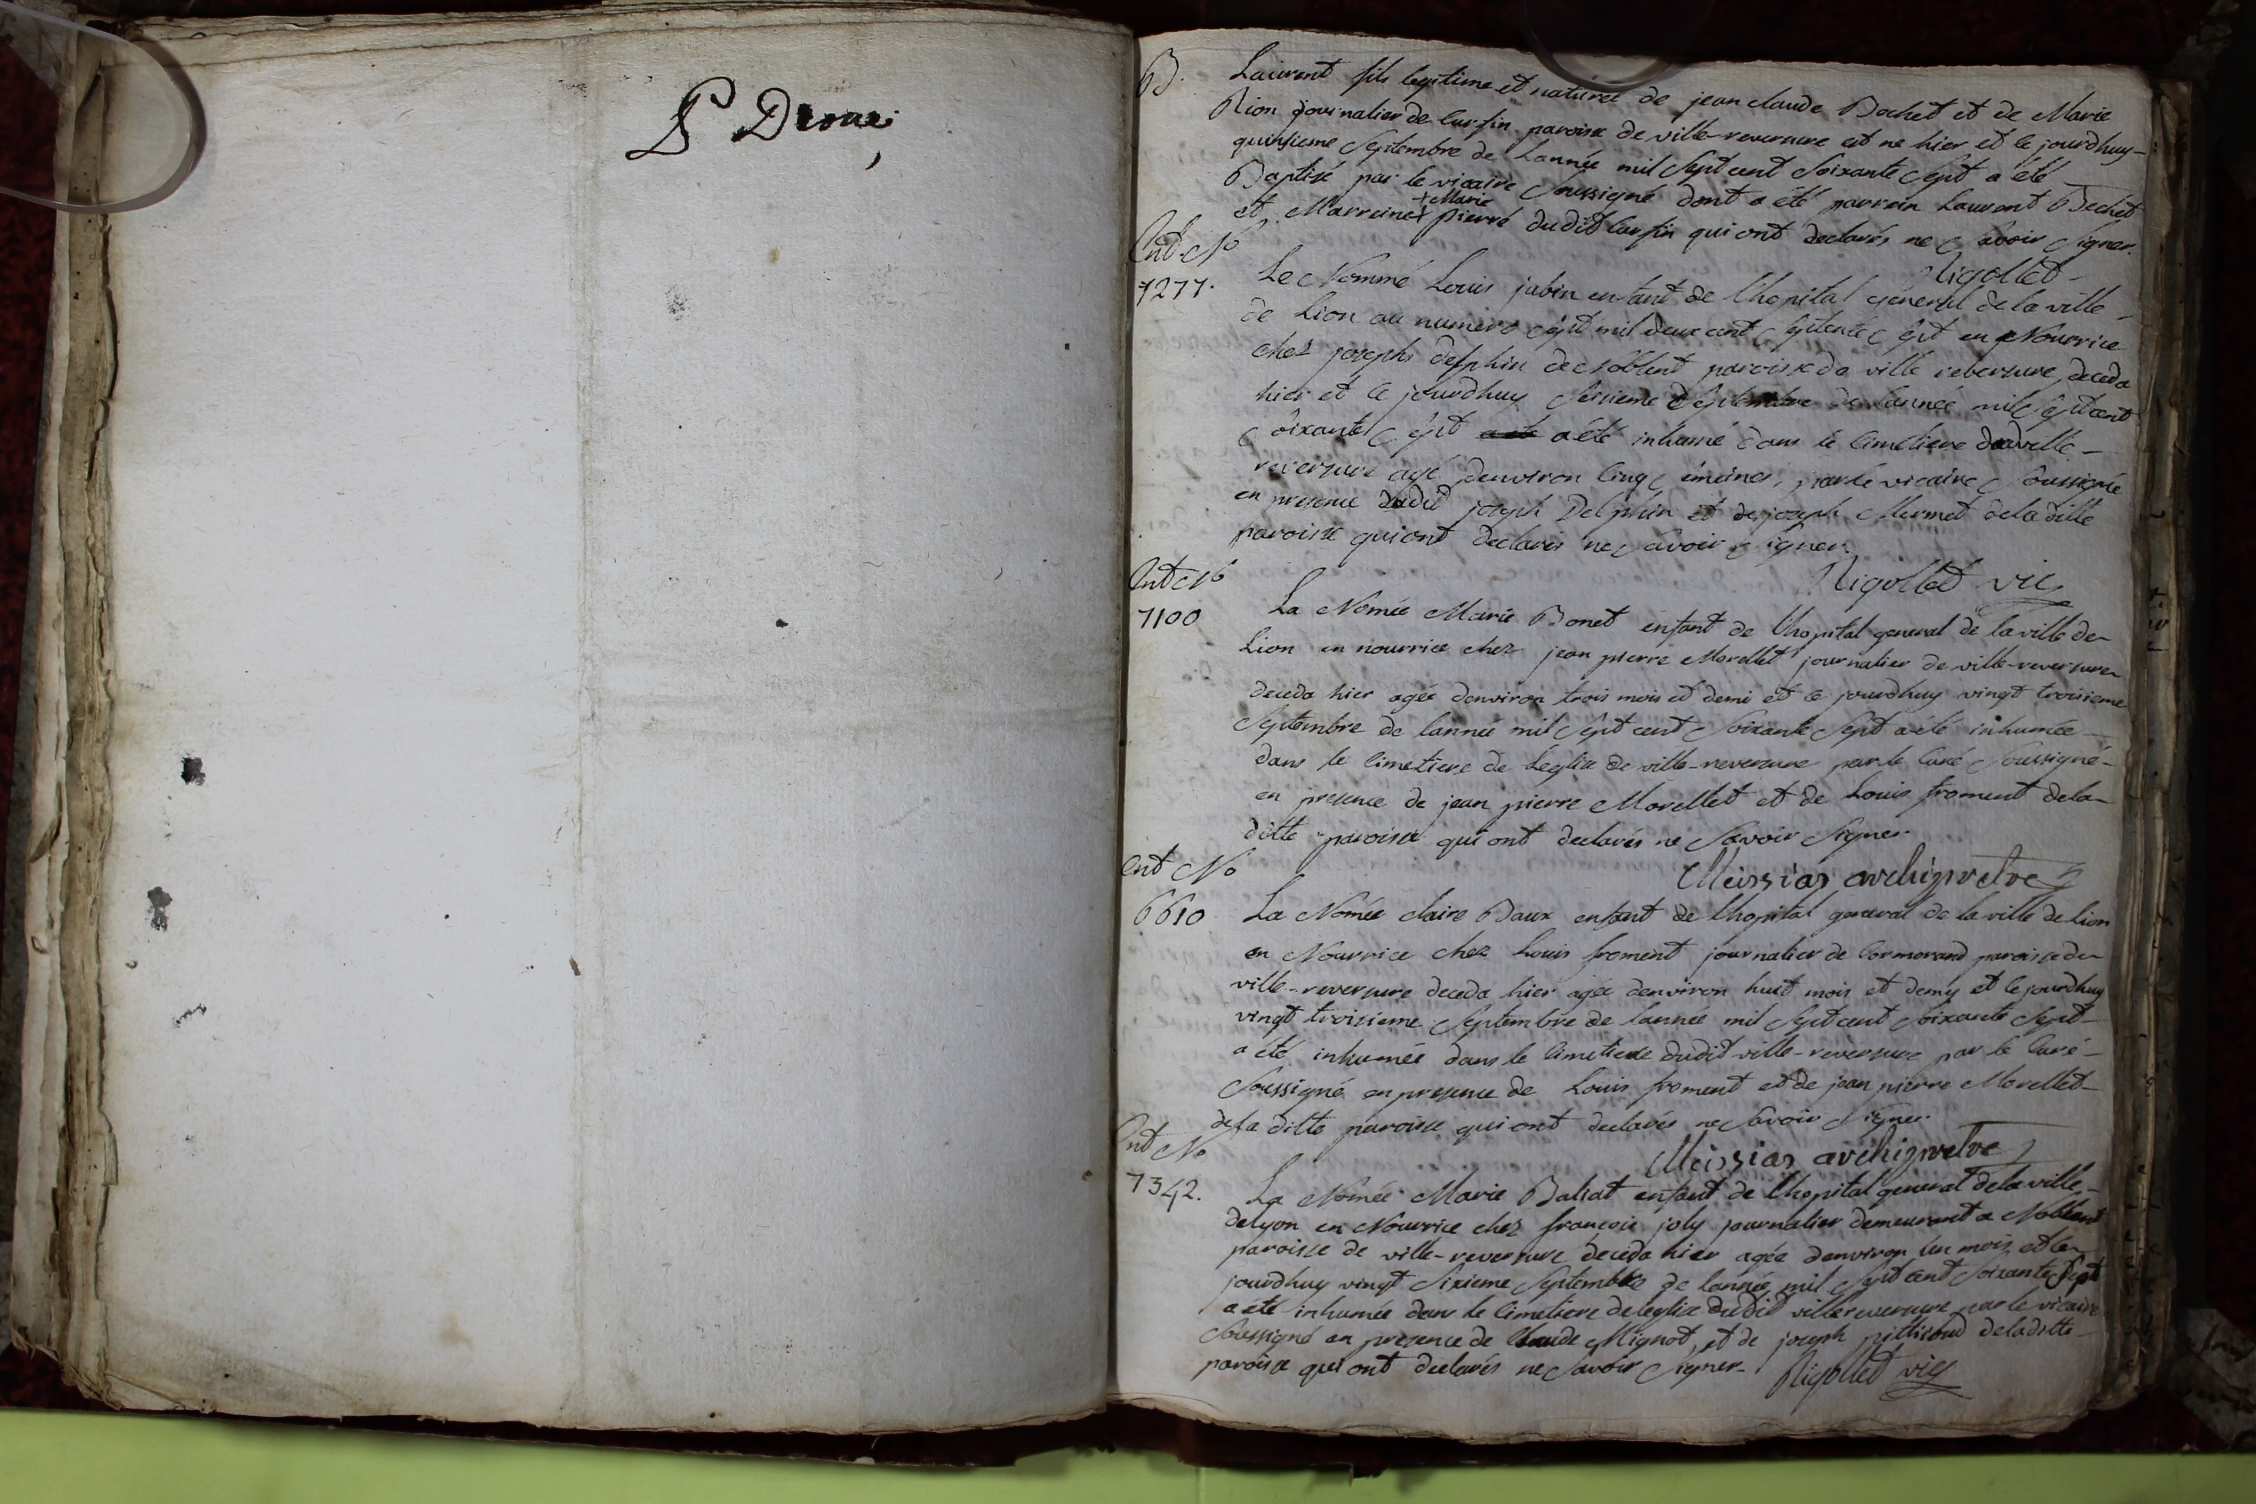 B.
Laurent fils legitime et naturel de jean claude Bochet et de Marie
Rion journalier de Curfin paroisse de ville-reversure est ne hier et le jourdhuy
quinsieme Septembre de Lannée mil Sept cent Soixante Sept a été
Baptisé par le vicaire Soussigné dont a été parrein Laurent Bechet
et Marreine +Marie pierre dudit Curfin qui ont declarés ne Savoir Signer.
Rigollet
Ent. No
7277.
Le Nommé Louis jabin enfant de l'hopital general de la ville
de Lion au numero Sept mil deux cent Septente Sept en Nourrice
chez joseph delphin de Noblent paroisse de ville reversure, deceda
hier et le jourdhuy Seisieme Septembre de lannee mil Sept cent
Soixante Sept a été a été inhumé dans le Cimetiere de ville
reversure agé denviron Cinq Semeines, par le vicaire Soussigné
en presence dudit joseph Delphin et de joseph Mermet de la ditte
paroisse qui ont declarés ne Savoir Signer.
Rigollet vic
Ent No
7100
La Nomée Marie Bonet enfant de l'hopital general de la ville de
Lion en nourrice chez jean pierre Morellet journalier de ville-reversure
deceda hier agée denviron trois mois et demi et le jourdhuy vingt troisieme
Septembre de lannée mil Sept cent Soixante Sept a été inhumée
dans le Cimetiere de Léglise de ville-reversure par le Curé Soussigné
en presence de jean pierre Morellet et de Louis froment de la
ditte paroisse qui ont declarés ne Savoir Signer.
Meissias archipretre
Ent No
6610
La Nomée claire Baux enfant de l'hopital general de la ville de Lion
en Nourrice chez Louis froment journalier de Cormorand paroisse de
ville-reversure deceda hier agée denviron huit mois et demy et le jourdhuy
vingt troisieme Septembre de lannée mil Sept cent Soixante Sept
a été inhumée dans le Cimetiere dudit ville-reversure par le Curé
Soussigné en presence de Louis froment et de jean pierre Morellet
de la ditte paroisse qui ont declarés ne Savoir Signer.
Meissias archipretre
Ent No
7342.
La Nomée Marie Baliat enfant de l'hopital general de la ville
de lyon en Nourrice chez françois joly journalier demeurant a Noblent
paroisse de ville-reversure deceda hier agée denviron un mois et le
jourdhuy vingt Sixieme Septembre de lannée mil Sept cent Soixante Sept
a été inhumée dans le Cimetiere de leglise dudit ville reversure par le vicaire
Soussigné en presence de Claude Mignot, et de joseph pittioud de la ditte
paroisse qui ont declarés ne Savoir Signer. Rigollet vic